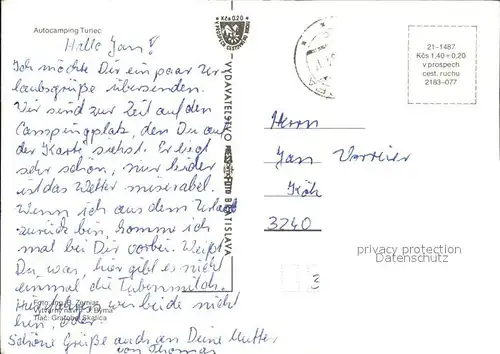 Autocamping Turiec
Hallo Jan!
Ich möchte Dir ein paar Ur-
laubsgrüße übersenden.
Wir sind zur Zeit auf den
Campingplatz, den Du auf
der Karte siehst. Er liegt
sehr schön, nur leider
ist das Wetter miserabel.
Wenn ich aus dem Urlaub
zurück bin, komme ich
mal bei Dir vorbei. Weißt
Du was, hier gibt es nicht
einmal die Tubenmilch.
wir beide nicht
hin, oder
Schöne Grüße auch an Deine Mutter
von Thomas
Foto: Ing. B.
Výtvarný návrh: J. Byrna
Tlač: Grafobal Skalica
Kčs 0,20
VYDAVATEĽSTVO
BRATISLAVA
21-1487
Kčs 1,40+0,20
v prospech
cest. ruchu
2183-077
Herrn
Jan
3240
privacy protection
DetailVorschau
3